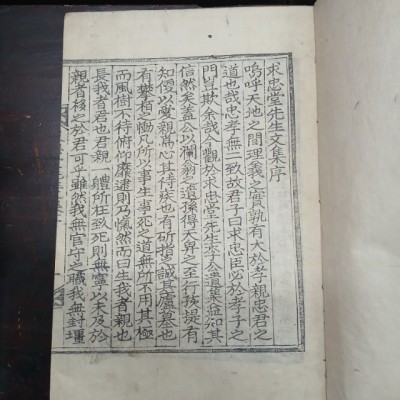 求忠堂先生文集序
嗚呼天地之間理義之實孰有大於孝親忠君之
道也哉忠孝無二致故君子曰求忠臣必於孝子之
門豈欺余哉今觀於求忠堂先生李公遺藁益知其
信然矣蓋公以瀾翁之遺孫得天界之至行孩提有
知便以愛親爲心其侍疾也有斫指之誠其廬墓也
有攀栢之慟凡所以事生事死之道無所不用其極
而風樹不待俯仰靡逮則乃愾然而曰生我者親也
長我者君也君親一體所在致死則無寧以未及於
親者移之於君可乎雖然我無官守之職我無封壃